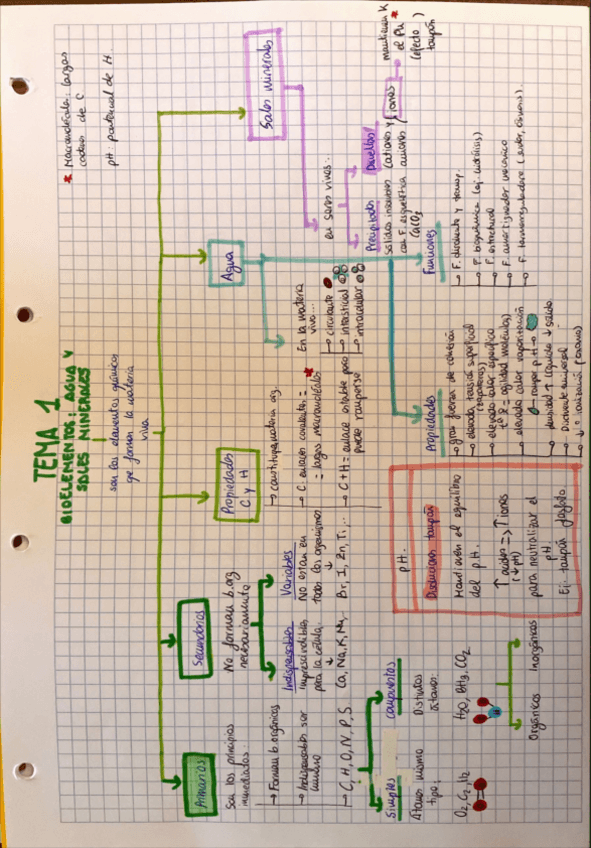 TEMA 1
BIOELEMENTOS: AGUA Y
SALES MINERALES
son los elementos químicos
que forman la materia
viva
* Macromolécula: largas
cadenas de C
pH: potencial de H.
Primarios
Son los principios
inmediatos:
→ Forman b. orgánicos
→ Indispensables ser
humano
→ C, H, O, N, P, S
Simples
Átomos mismo
tipo:
O2, C2, H2
Compuestos
Distintos
átomos:
H2O, BH3, CO2
Orgánicos
Inorgánicos
Secundarios
No forman b. org
necesariamente
Indispensables
imprescindibles
para la célula.
Ca, Na, K, Mg,
Variables
NO están en
todos los organismos
Br, I, Zn, Ti,..
Propiedades
C y H
→ constituyen materia org.
→ C. enlaces covalentes =
= largas macromoléculas *
→ C + H = enlace estable pero
puede romperse
Agua
En la materia
viva...
→ circulante
→ intersticial
→ intracelular
Propiedades
→ gran fuerza de cohesión
→ elevada tensión superficial
→ elevado calor específico
→ elevado calor vaporización
→ densidad ↑ líquido ↓ sólido
→ Disolvente universal
→ ↓ ionización
Funciones
→ F. disolvente y transp.
→ F. bioquímica (ej. hidrólisis)
→ F. estructural
→ F. amortiguador mecánico
→ F. termorreguladora (sudor,
Sales minerales
en seres vivos:
Precipitados
Sólidas insolubles
con F. esquelética
CaCO3
Disueltas
Cationes y
aniones
iones
mantienen k
el PH *
(efecto
tapón)
pH.
Disoluciones tampón
Mantienen el equilibrio
del pH.
↑ ácidos => ↑ iones
(↓ pH)
para neutralizar el
pH.
Ej. tampón fosfato